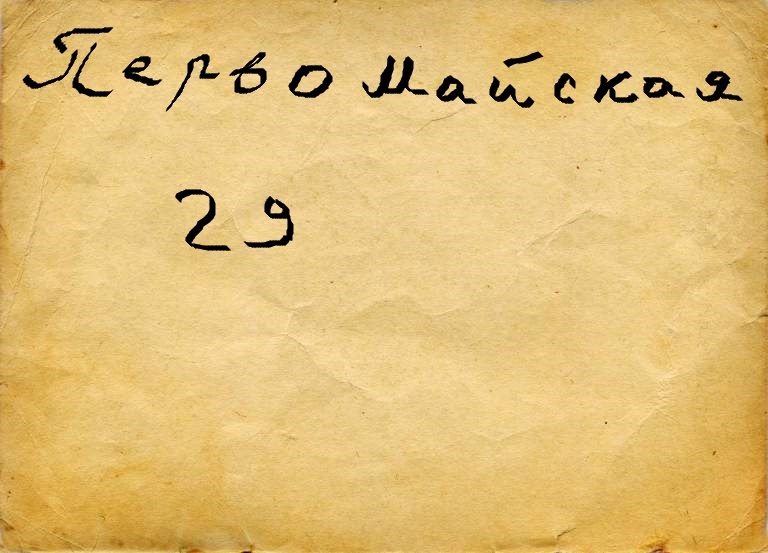 Перво Майская
29